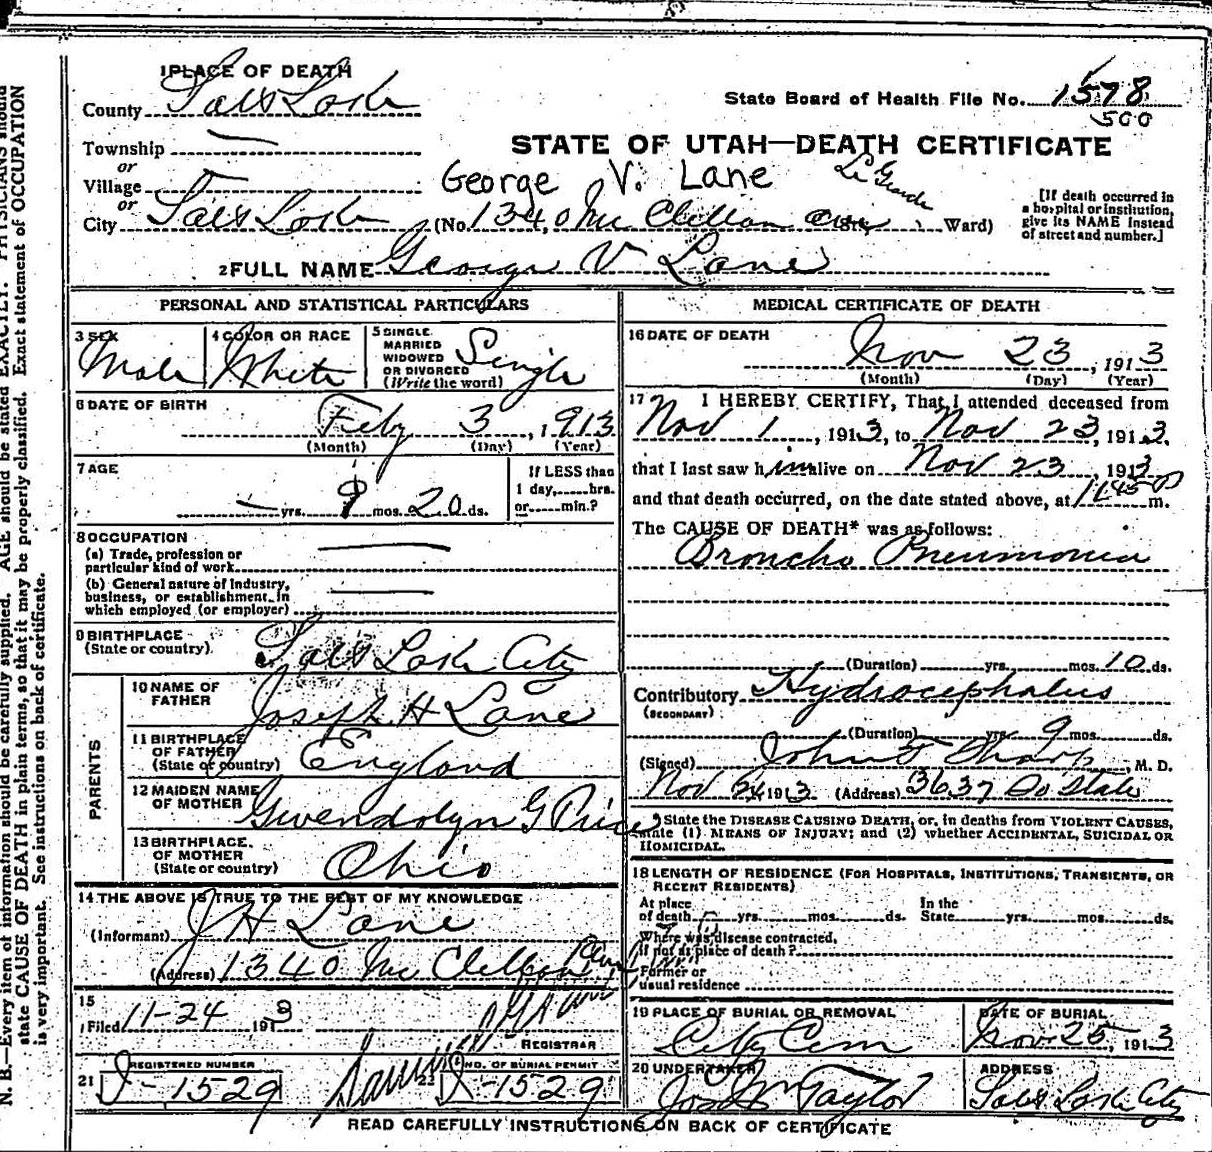 1 PLACE OF DEATH
County Salt Lake
State Board of Health File No. 1578
500
Township —
or
Village
or
STATE OF UTAH—DEATH CERTIFICATE
George V. Lane
Le Grande
City Salt Lake (No. 1340 McClellan ave St., Ward)
[If death occurred in a hospital or institution, give its NAME instead of street and number.]
2 FULL NAME George V Lane
PERSONAL AND STATISTICAL PARTICULARS
3 SEX Male
4 COLOR OR RACE White
5 SINGLE MARRIED WIDOWED OR DIVORCED (Write the word) Single
6 DATE OF BIRTH
Feby 3, 1913
(Month) (Day) (Year)
7 AGE
— yrs. 9 mos. 20 ds.
If LESS than 1 day, hrs. or min.?
8 OCCUPATION
(a) Trade, profession or particular kind of work —
(b) General nature of industry, business, or establishment in which employed (or employer) —
9 BIRTHPLACE
(State or country) Salt Lake City
PARENTS
10 NAME OF FATHER Joseph H Lane
11 BIRTHPLACE OF FATHER (State or country) England
12 MAIDEN NAME OF MOTHER Gwendolyn G Price
13 BIRTHPLACE OF MOTHER (State or country) Ohio
14 THE ABOVE IS TRUE TO THE BEST OF MY KNOWLEDGE
(Informant) J H Lane
(Address) 1340 McClellan
15
Filed 11-24 1913
REGISTRAR
REGISTERED NUMBER
21 J-1529
NO. OF BURIAL PERMIT
J-1529
MEDICAL CERTIFICATE OF DEATH
16 DATE OF DEATH
Nov 23, 1913
(Month) (Day) (Year)
17 I HEREBY CERTIFY, That I attended deceased from
Nov 1, 1913, to Nov 23, 1913.
that I last saw him alive on Nov 23, 1913
and that death occurred, on the date stated above, at 11:45 P m.
The CAUSE OF DEATH* was as follows:
Broncho Pneumonia
(Duration) yrs. mos. 10 ds.
Contributory Hydrocephalus
(SECONDARY)
(Duration) yrs. 9 mos. ds.
(Signed) John F Sharp, M. D.
Nov 24, 1913. (Address) 3637 So State
* State the DISEASE CAUSING DEATH, or, in deaths from VIOLENT CAUSES,
state (1) MEANS OF INJURY; and (2) whether ACCIDENTAL, SUICIDAL OR
HOMICIDAL.
18 LENGTH OF RESIDENCE (FOR HOSPITALS, INSTITUTIONS, TRANSIENTS, OR
RECENT RESIDENTS)
At place of death yrs. mos. ds. In the State yrs. mos. ds.
Where was disease contracted,
if not at place of death?
Former or
usual residence
19 PLACE OF BURIAL OR REMOVAL
City Cem
DATE OF BURIAL
Nov 25, 1913
20 UNDERTAKER
Jos Wm Taylor
ADDRESS
Salt Lake City
READ CAREFULLY INSTRUCTIONS ON BACK OF CERTIFICATE
N. B.—Every item of information should be carefully supplied. AGE should be stated EXACTLY. PHYSICIANS should
state CAUSE OF DEATH in plain terms, so that it may be properly classified. Exact statement of OCCUPATION
is very important. See instructions on back of certificate.